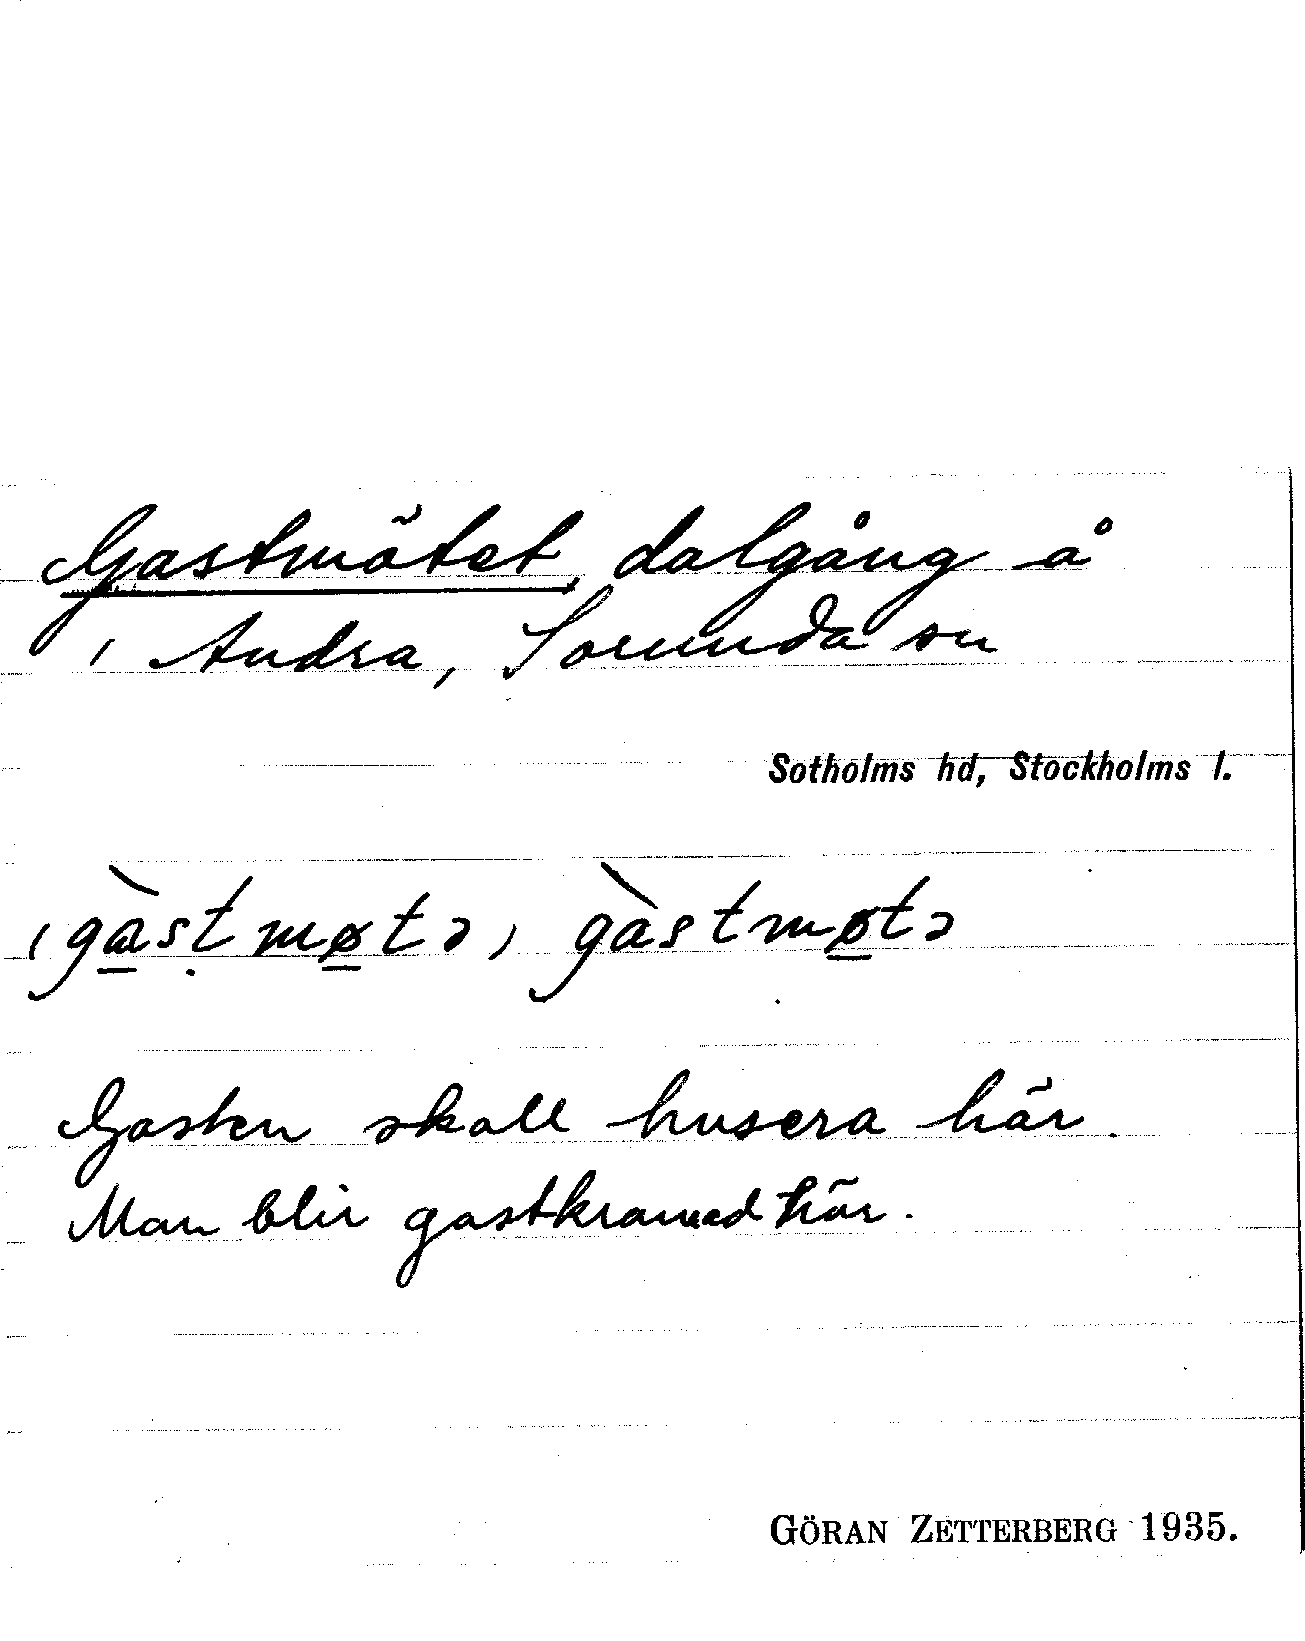 Gastmötet, dalgång å
i Andra, Sorunda sn
Sotholms hd, Stockholms l.
(gàstmøtə) gàstmøtə
Gasten skall husera här.
Man blir gastkramad här.
GÖRAN ZETTERBERG 1935.